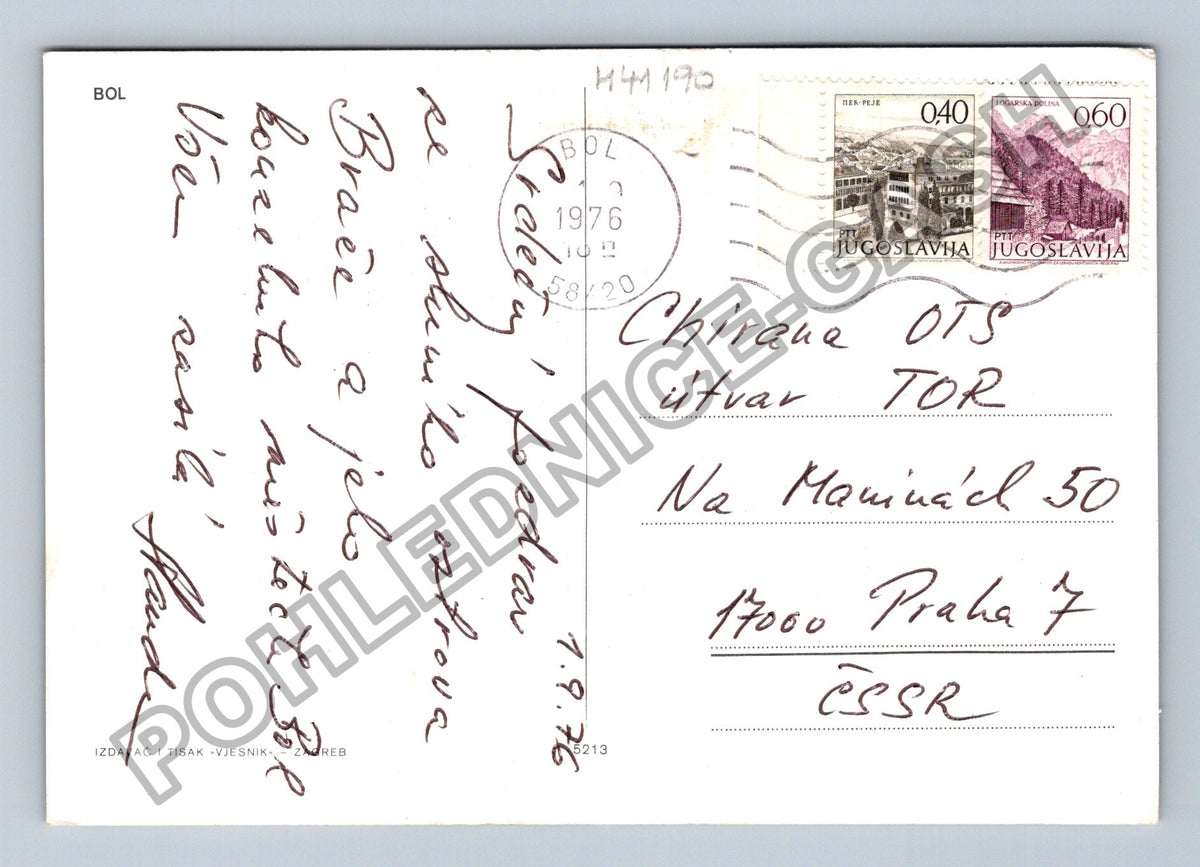 BOL
H41190
ПЕЋ-PEJË
0,40
PTT
JUGOSLAVIJA
LOGARSKA DOLINA
0,60
PTT
JUGOSLAVIJA
BOL
1976
58420
Srdečný pozdrav
ze slunného ostrova
Brače a jeho
kouzelného městečka Bol
Vám zasílá
1.9.76
Chirana OTS
útvar TOR
Na Maninách 50
17000 Praha 7
ČSSR
IZDAVAČ I TISAK »VJESNIK« – ZAGREB
5213
POHLEDNICE-GASH